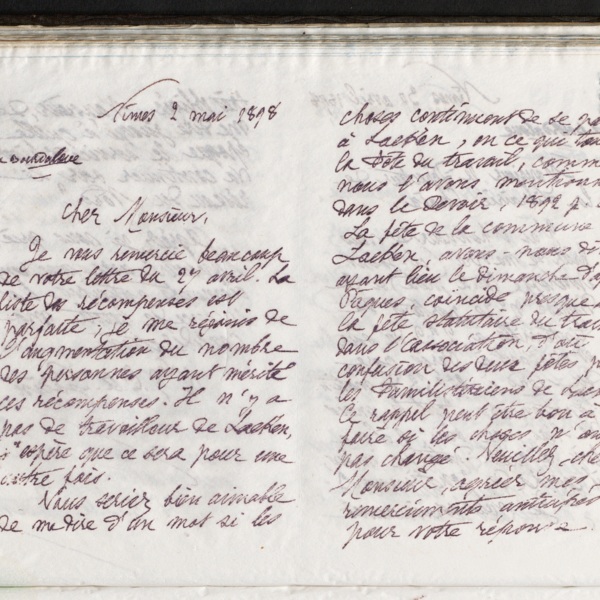 Nîmes 2 mai 1898
Cher Monsieur,
Je vous remercie beaucoup
de votre lettre du 27 avril. La
liste des récompenses est
parfaite ; je me réjouis de
l'augmentation du nombre
des personnes ayant mérité
ces récompenses. Il n'y a
pas de travailleur de Laeken,
j'espère que ce sera pour une
autre fois.
Vous seriez bien aimable
de me dire d'un mot si les
choses continuent de se pa
à Laeken, en ce qui tou
la Fête du travail, comm
nous l'avons mentionn
dans le Devoir 1892 p.
La fête de la commune
Laeken, avons-nous di
ayant lieu le dimanche d'a
Pâques, coïncide presque
la fête statutaire du trav
dans l'association, d'où
confusion des deux fêtes p
les Familistériens de Lae
Ce rappel peut être bon à
faire si les choses n'on
pas changé. Veuillez, che
Monsieur, agréer mes
remerciements anticipés
pour votre réponse